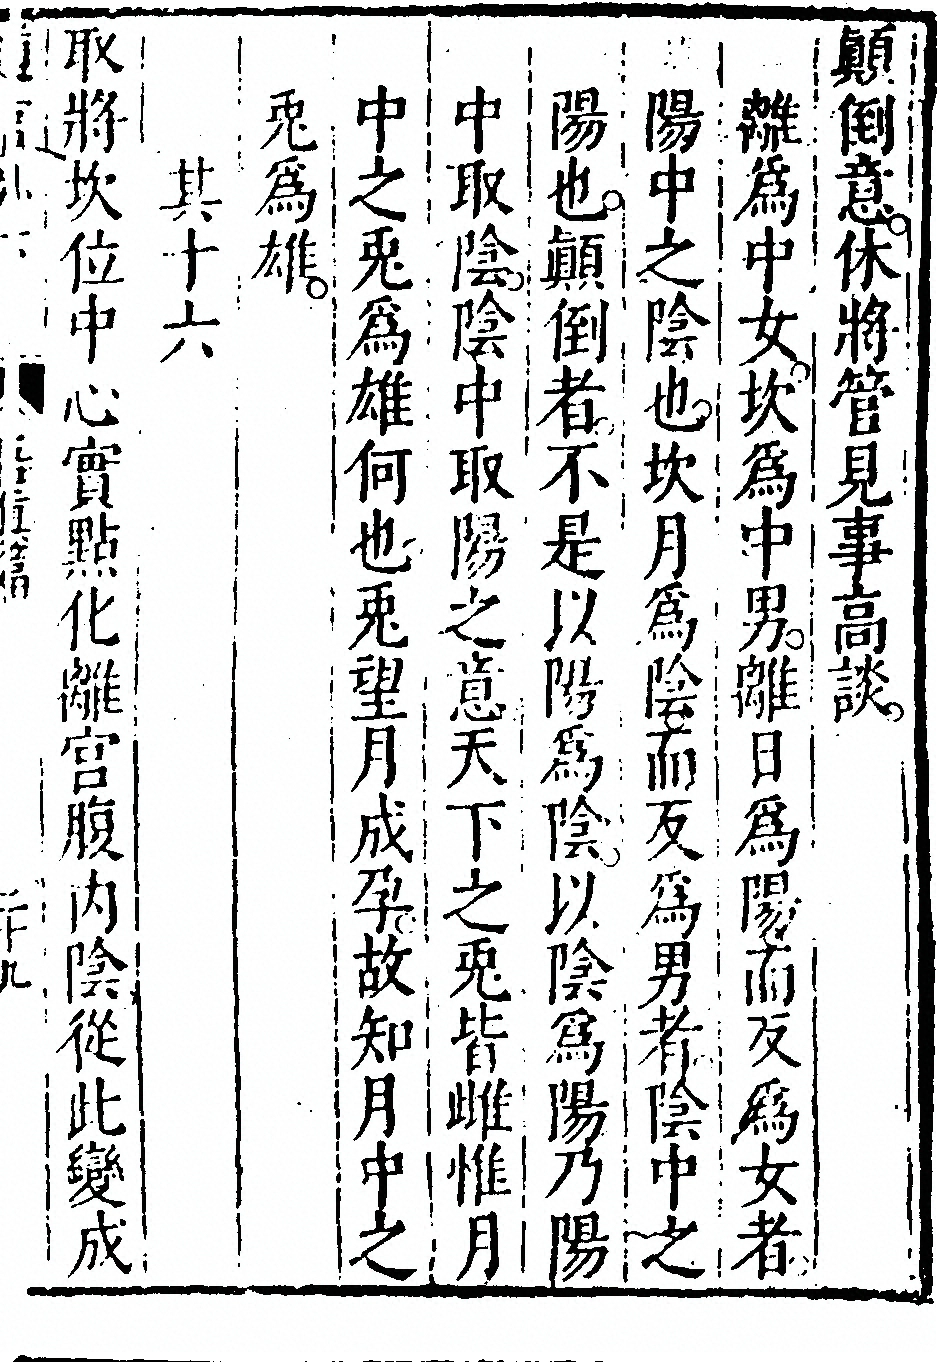 顚倒意休將管見事高談
離爲中女坎爲中男離日爲陽而反爲女者
陽中之陰也坎月爲陰而反爲男者陰中之
陽也顚倒者不是以陽爲陰以陰爲陽乃陽
中取陰陰中取陽之意天下之兎皆雌惟月
中之兎爲雄何也兎望月成孕故知月中之
兎爲雄
其十六
取將坎位中心實點化離宮腹内陰從此變成
二十九